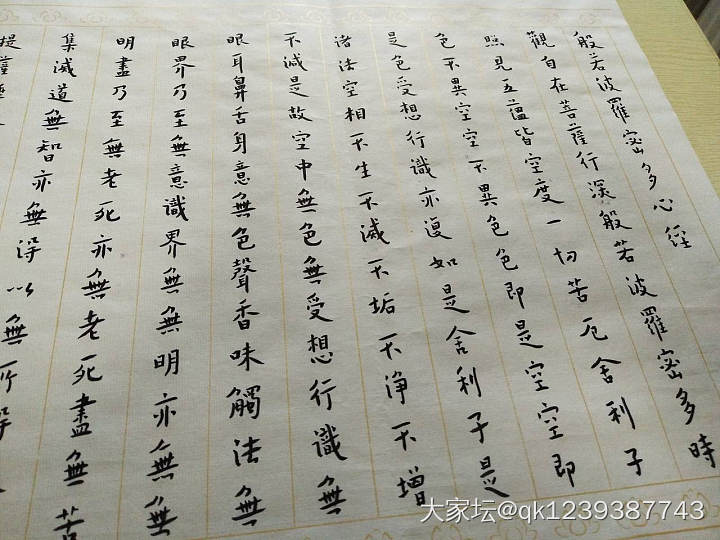 般若波羅蜜多心經
觀自在菩薩行深般若波羅蜜多時
照見五蘊皆空度一切苦厄舍利子
色不異空空不異色色即是空空即
是色受想行識亦復如是舍利子是
諸法空相不生不滅不垢不淨不增
不減是故空中無色無受想行識無
眼耳鼻舌身意無色聲香味觸法無
眼界乃至無意識界無無明亦無無
明盡乃至無老死亦無老死盡無苦
集滅道無智亦無得以無所得
提薩
大家坛@qk1239387743